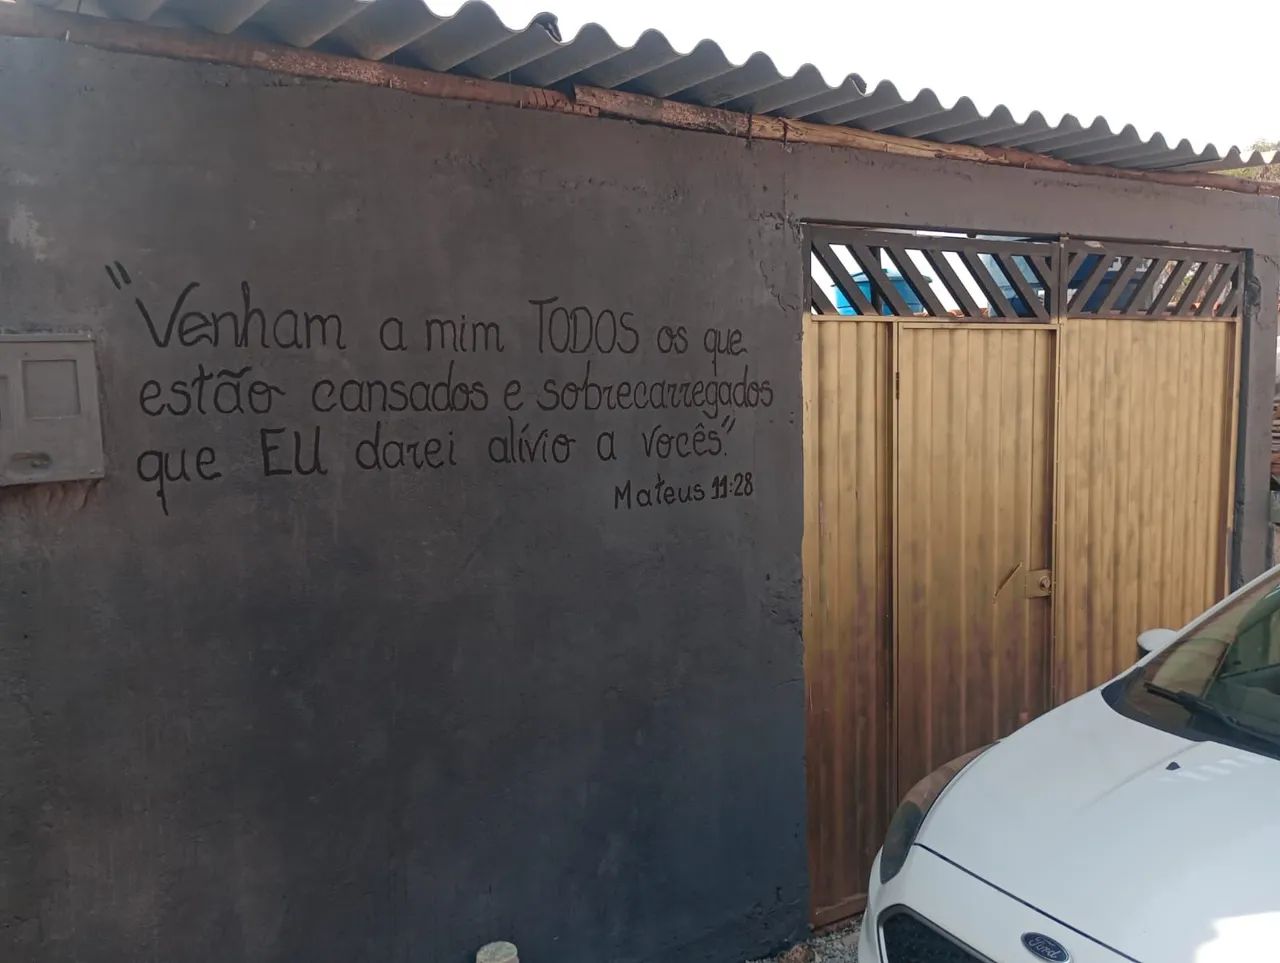 "Venham a mim TODOS os que
estão cansados e sobrecarregados
que EU darei alívio a vocês."
Mateus 11:28
Ford